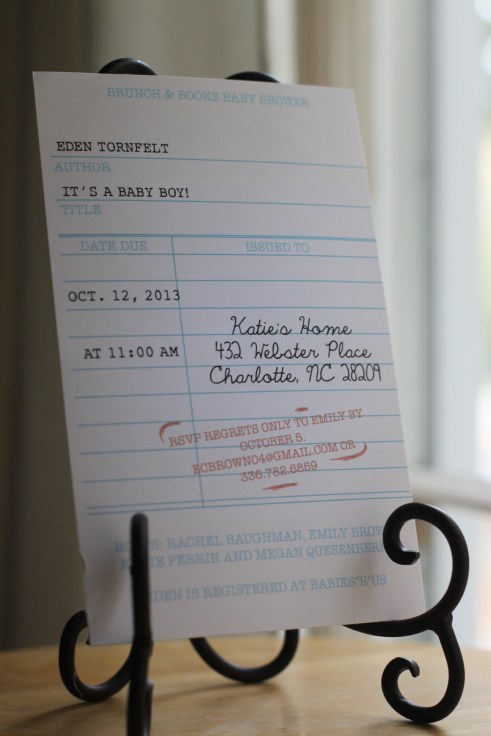 BRUNCH & BOOKS BABY SHOWER
EDEN TORNFELT
AUTHOR
IT'S A BABY BOY!
TITLE
DATE DUE
ISSUED TO
OCT. 12, 2013
AT 11:00 AM
Katie's Home
432 Webster Place
Charlotte, NC 28209
RSVP REGRETS ONLY TO EMILY BY
OCTOBER 5.
ECBROWN04@GMAIL.COM OR
336.782.6859
RACHEL BAUGHMAN, EMILY
PERRIN AND MEGAN
IS REGISTERED AT BABIES'R'US